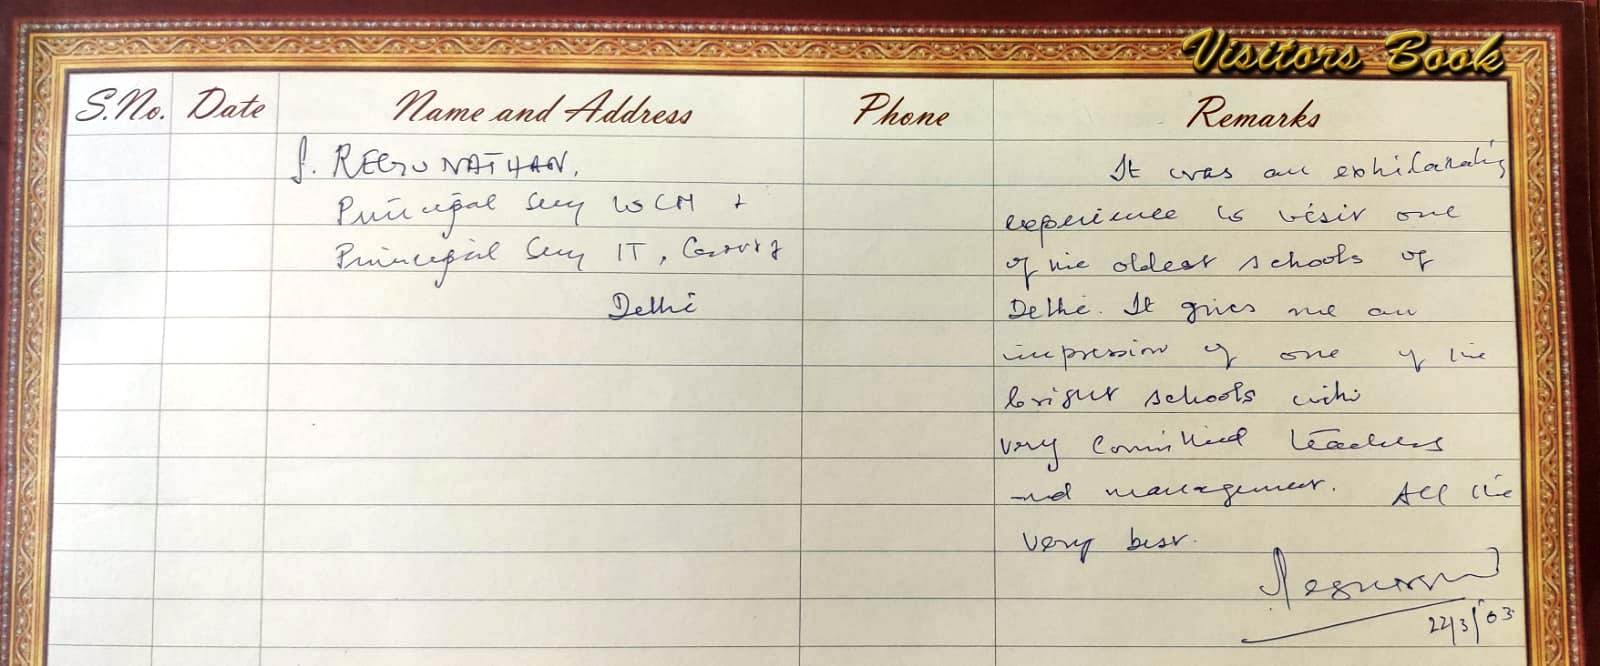 Visitors Book
S.No. Date Name and Address Phone Remarks
S. REGUNATHAN.
Principal Secy to CM &
Principal Secy IT, Govt of
Delhi
It was an exhilarating
experience to visit one
of the oldest schools of
Delhi. It gives me an
impression of one of the
bright schools with
very committed teachers
and management. All the
very best.
22/3/03